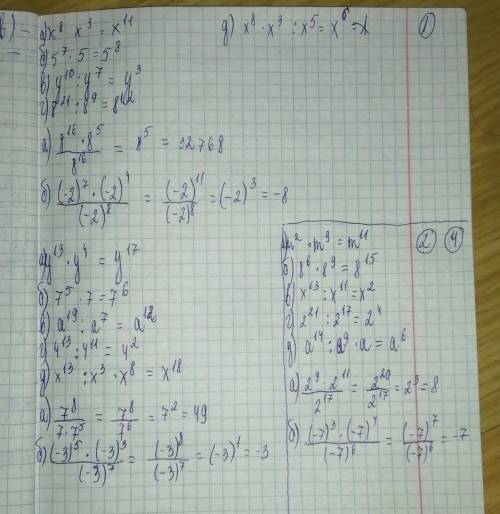 а) x⁸ x³ = x¹¹
б) 5⁷ · 5 = 5⁸
в) y¹⁰ : y⁷ = y³
г) 8¹¹ : 8⁹ = 8²
д) x⁸ · x³ : x⁵ = x⁶
①
а) (8¹⁶ · 8⁵)/8¹⁶ = 8⁵ = 32768
б) ((-2)⁷ · (-2)⁴)/(-2)⁸ = (-2)¹¹/(-2)⁸ = (-2)³ = -8
а) y¹³ · y⁴ = y¹⁷
б) 7⁵ · 7 = 7⁶
в) a¹⁹ : a⁷ = a¹²
г) 4¹³ : 4¹¹ = 4²
д) x¹³ : x³ · x⁸ = x¹⁸
а) 7⁸/(7·7⁵) = 7⁸/7⁶ = 7² = 49
б) ((-3)⁵ · (-3)³)/(-3)⁷ = (-3)⁸/(-3)⁷ = (-3)¹ = -3
② ④
а) m² · m⁹ = m¹¹
б) 8⁶ · 8⁹ = 8¹⁵
в) x¹³ : x¹¹ = x²
г) 2²¹ : 2¹⁷ = 2⁴
д) a¹⁴ : a⁹ · a = a⁶
а) (2⁹ · 2¹¹)/2¹⁷ = 2²⁰/2¹⁷ = 2³ = 8
б) ((-7)³ · (-7)⁴)/(-7)⁶ = (-7)⁷/(-7)⁶ = -7